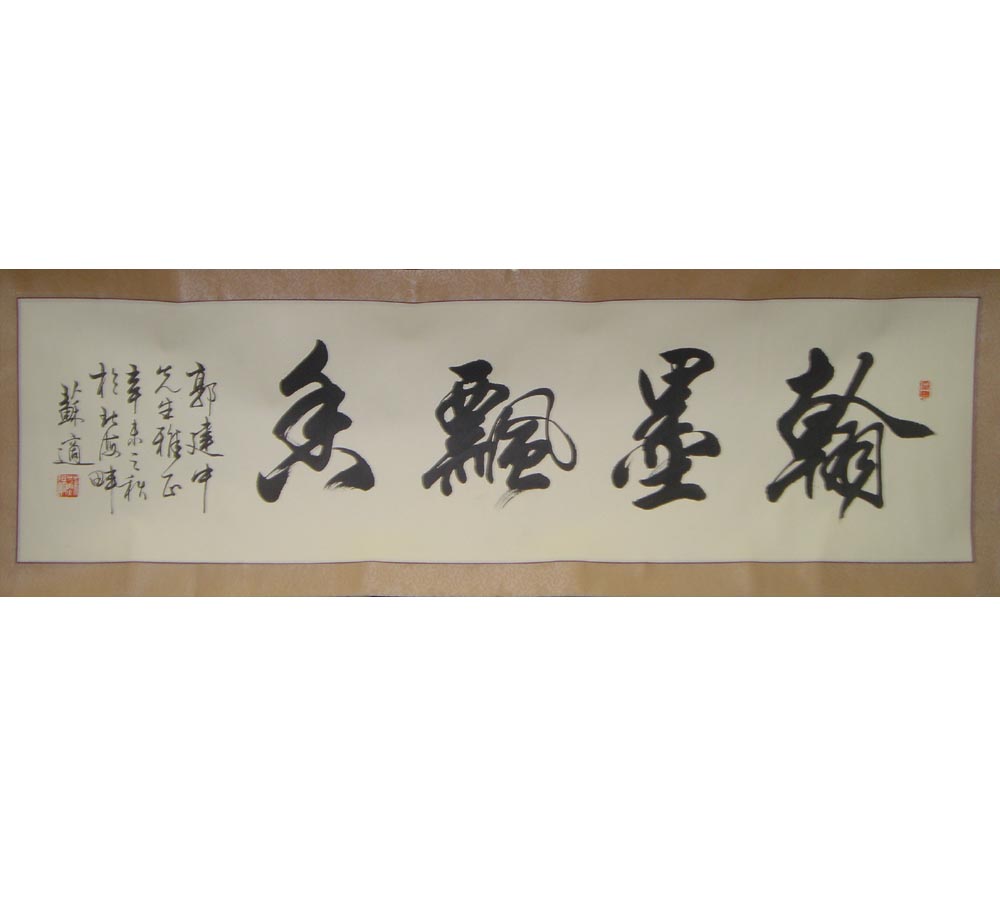 翰墨飄香
郭建中
先生雅正
辛未之秋
於北海畔
蘇適